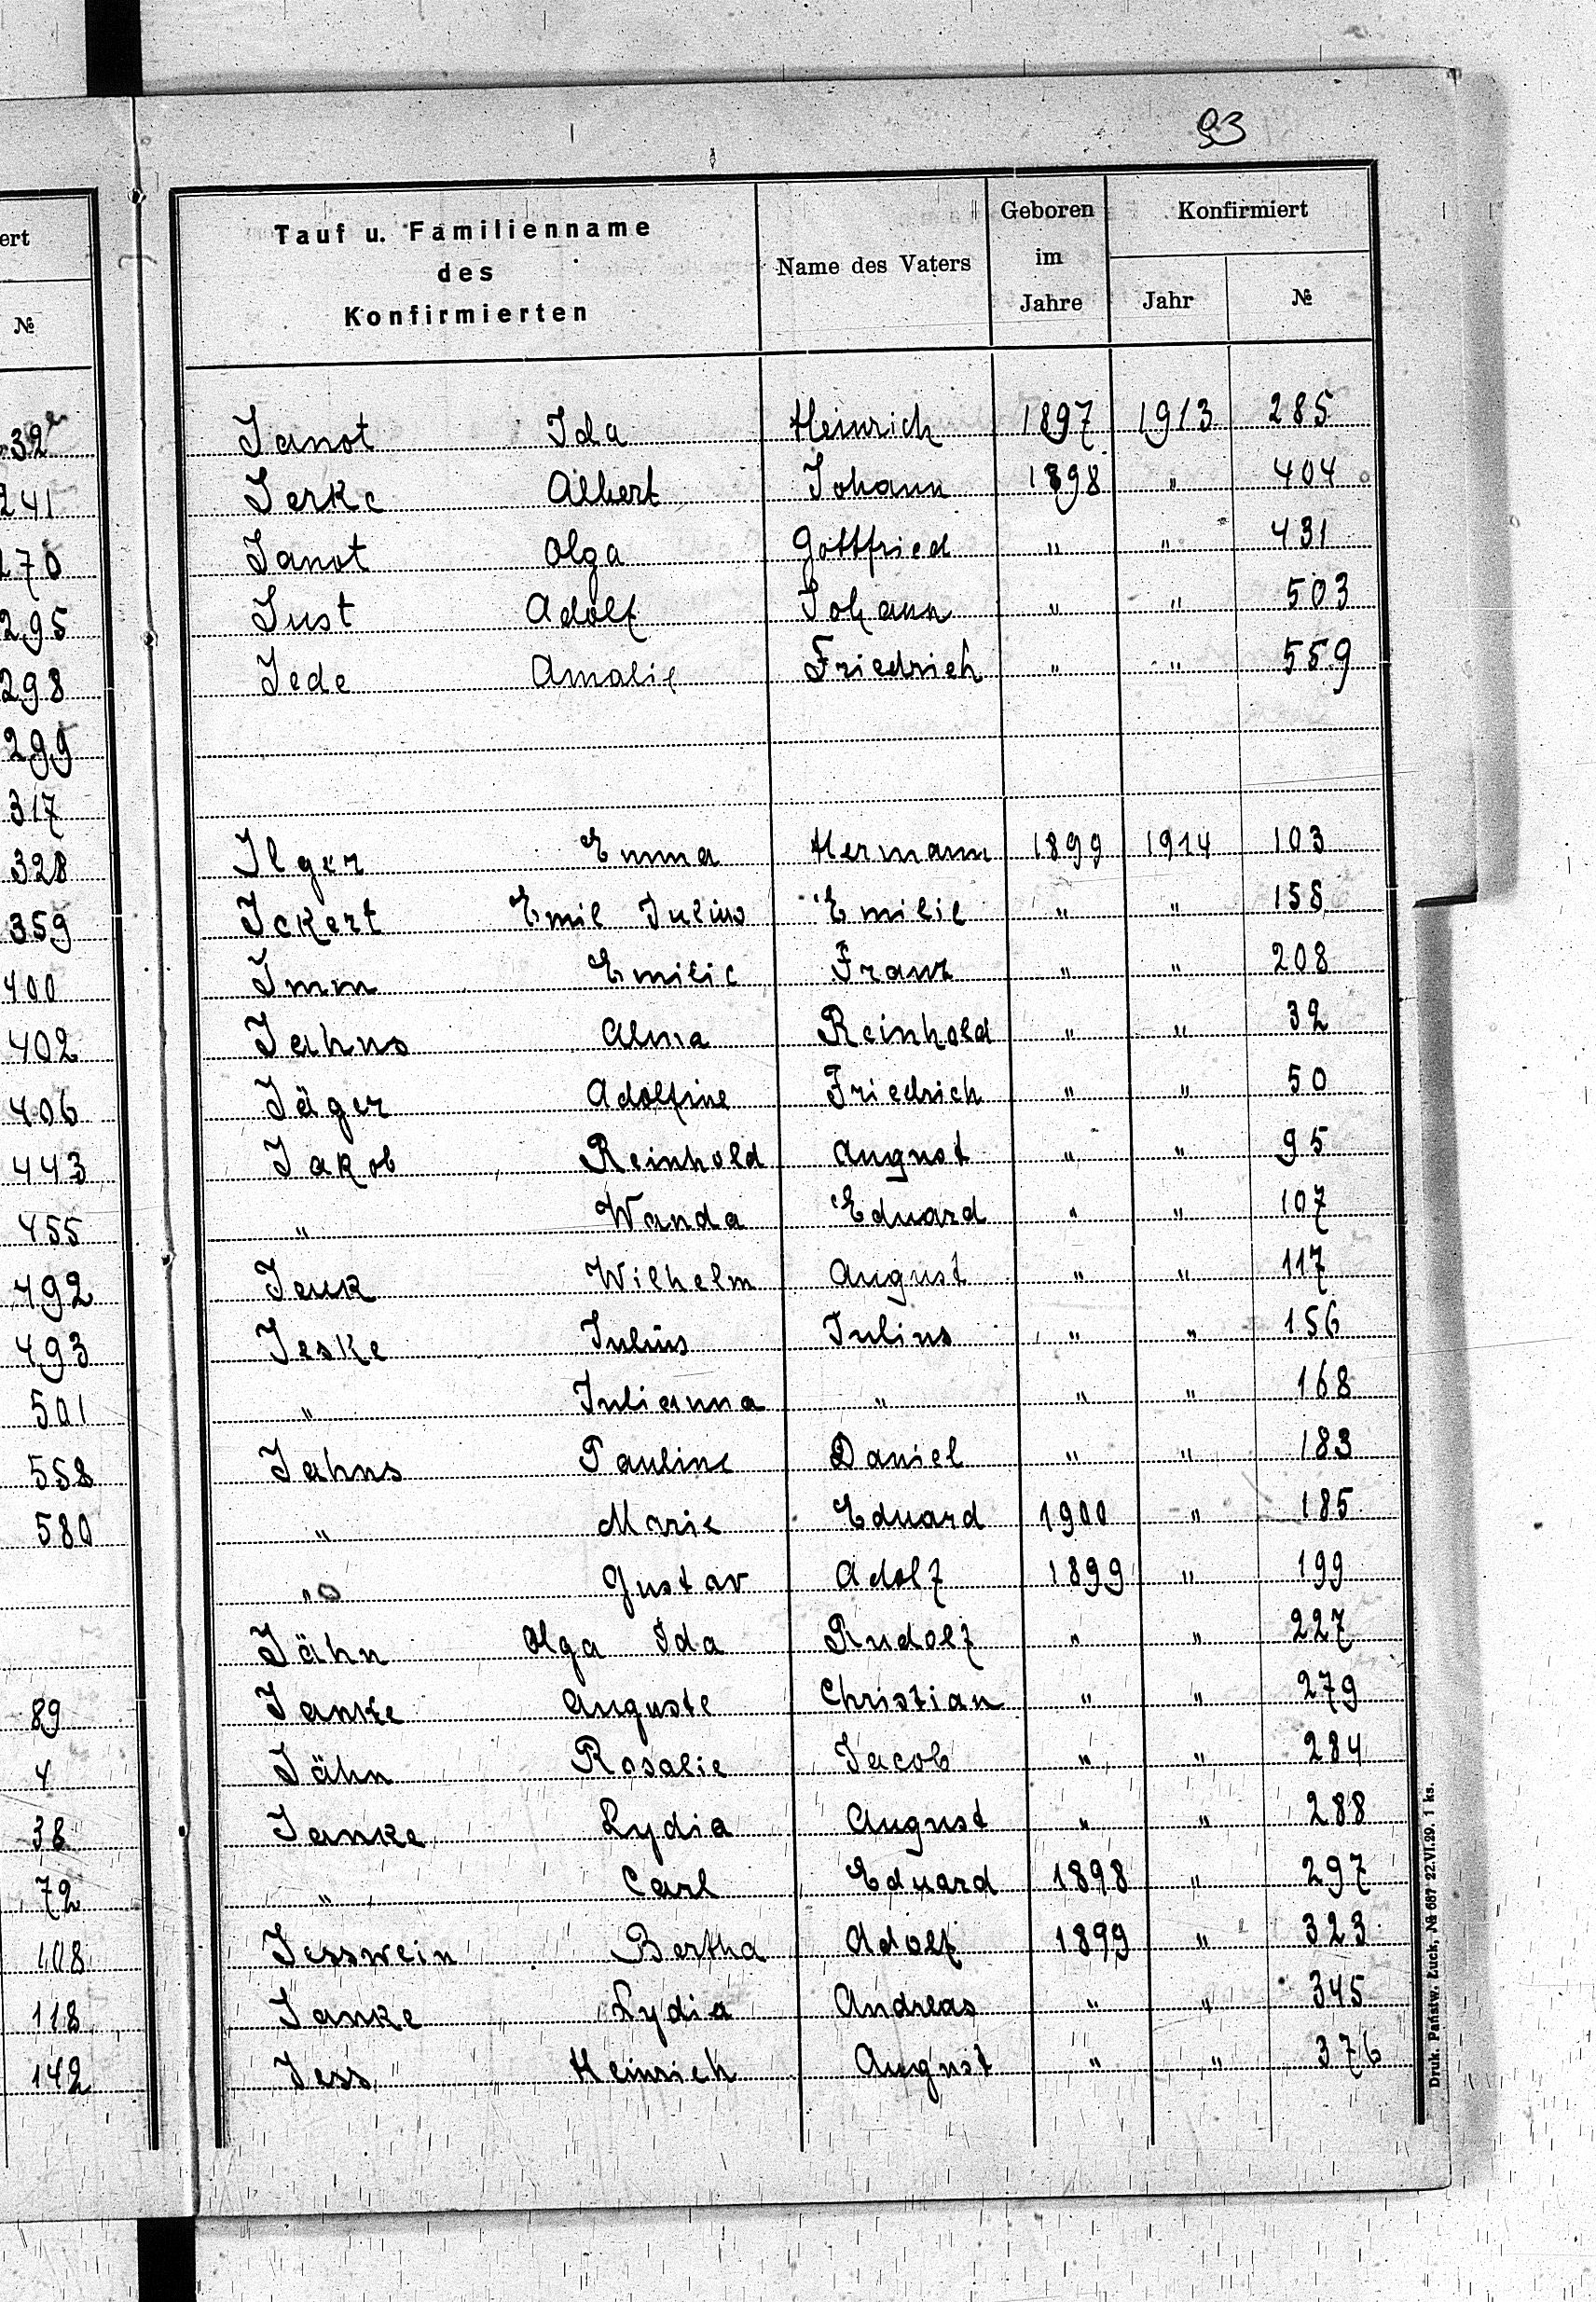 93
ert
№
32
241
270
295
298
299
317
328
359
400
402
406
443
455
492
493
501
558
580
89
4
38
72
108
118
142
Tauf u. Familienname
des
Konfirmierten
Name des Vaters
Geboren
im
Jahre
Konfirmiert
Jahr
№
Janot Ida Heinrich 1897 1913 285
Jerke Albert Johann 1898 " 404
Janot Olga Gottfried " " 431
Just Adolf Johann " " 503
Jede Amalie Friedrich " " 559
Ilger Emma Hermann 1899 1914 103
Ickert Emil Julius Emilie " " 158
Imm Emilie Franz " " 208
Jahns Alma Reinhold " " 32
Jäger Adolfine Friedrich " " 50
Jakob Reinhold August " " 95
" Wanda Eduard " " 107
Jauk Wilhelm August " " 117
Jeske Julius Julius " " 156
" Julianna " " " 168
Jahns Pauline Daniel " " 183
" Marie Eduard 1900 " 185
" Gustav Adolf 1899 " 199
Jähn Olga Ida Rudolf " " 227
Janke Auguste Christian " " 279
Jähn Rosalie Jacob " " 284
Janke Lydia August " " 288
" Carl Eduard 1898 " 297
Jesswein Bertha Adolf 1899 " 323
Janke Lydia Andreas " " 345
Jess Heinrich August " " 376
Druk. Państw. Łuck, № 687 22.VI.29. 1 ks.